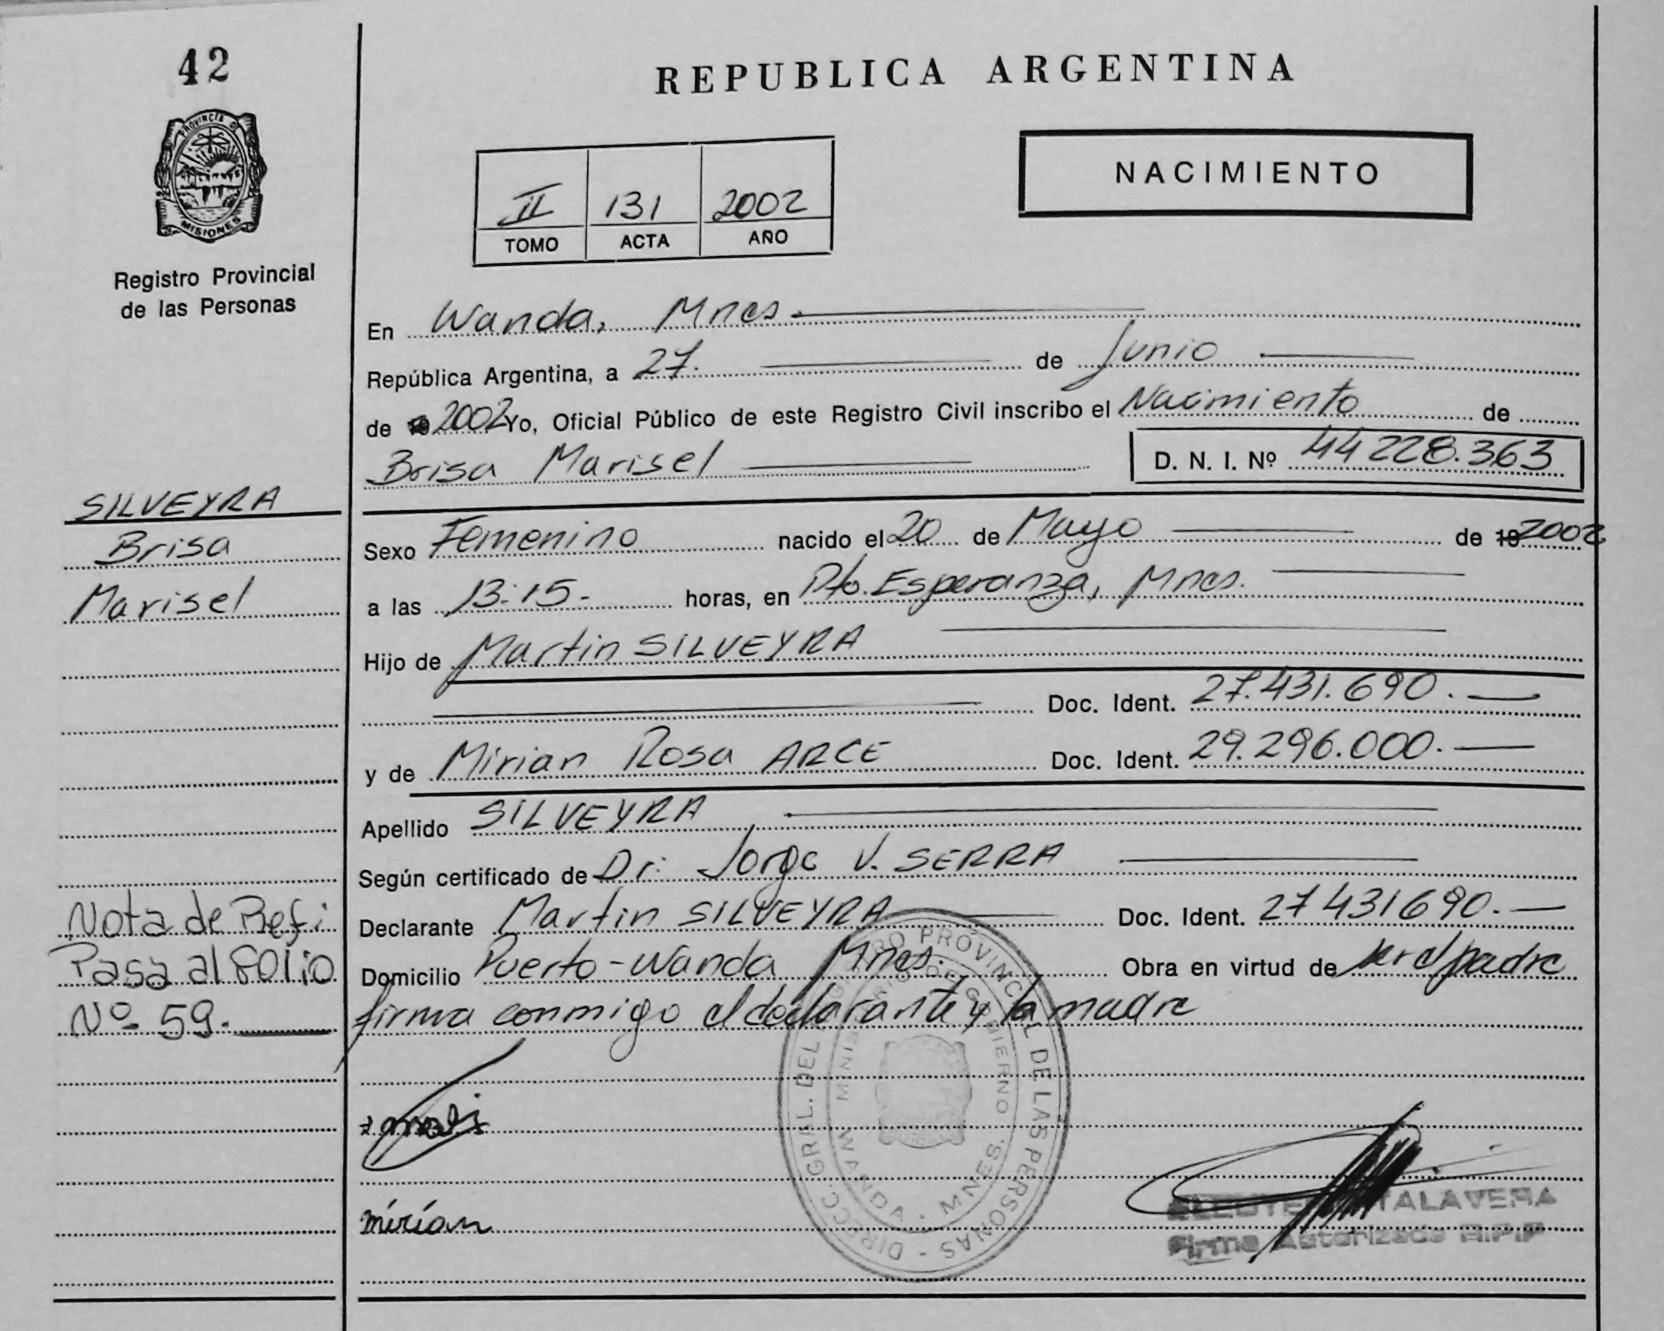 42
PROVINCIA DE
MISIONES
Registro Provincial
de las Personas
REPUBLICA ARGENTINA
II 131 2002
TOMO ACTA AÑO
NACIMIENTO
En Wanda, Mnes.
República Argentina, a 27. de Junio
de 19 2002 Yo, Oficial Público de este Registro Civil inscribo el Nacimiento de
Brisa Marisel D. N. I. Nº 44228.363
SILVEYRA
Brisa
Marisel
Sexo Femenino nacido el 20 de Mayo de 19 2002
a las 13:15- horas, en Pto. Esperanza, Mnes.
Hijo de Martin SILVEYRA
Doc. Ident. 27.431.690.
y de Mirian Rosa ARCE Doc. Ident. 29.296.000.
Apellido SILVEYRA
Según certificado de Dr. Jorge V. SERRA
Declarante Martin SILVEYRA Doc. Ident. 27431690.
Domicilio Puerto-Wanda Mnes. Obra en virtud de ser el padre
firma conmigo el declarante y la madre
Nota de Refi
Pasa al FOLIO
Nº 59.
mirian
DIRECC. GRAL. DEL REGISTRO PROVINCIAL DE LAS PERSONAS -
MINISTERIO DE GOBIERNO
WANDA - MNES.
TALAVERA
Firma Autorizada R.P.P